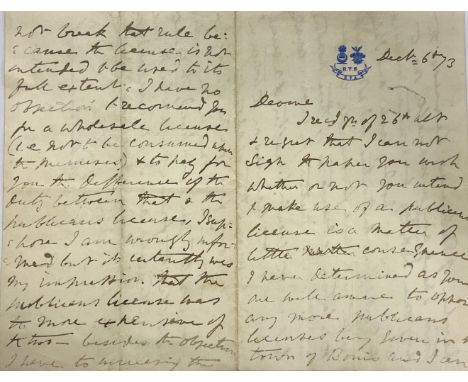 R.Y.S
Decbr 6th 73
Devine
I recd yrs of 26th ult
& regret that I can not
sign the paper you wish
whether or not you intend
to make use of a publicans
license is a matter of
little consequence
I have determined as you
are well aware to oppose
any more publicans
licenses being given in the
town of and I can
not break that rule be-
cause the license is not
intended to be used to its
full extent. I have no
objection to recommend you
for a wholesale license
(i.e not to be consumed upon
the premises) & to pay for
you the difference of the
duty between that & the
publicans license, I sup-
pose I am wrongly infor-
med but it certainly was
my impression that the
publicans license was
the more expensive of
the two - besides the objection
I have to increasing the